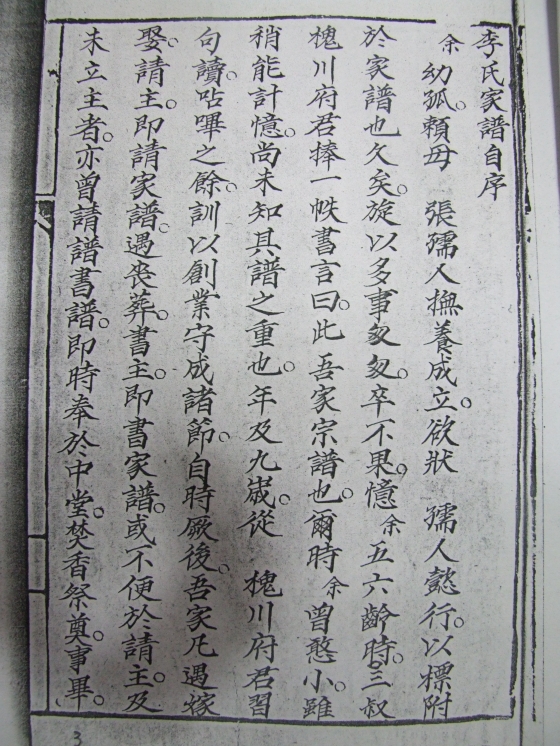 李氏家譜自序
余幼孤。賴母 張孺人撫養成立。欲狀 孺人懿行。以標附
於家譜也久矣。旋以多事匆匆。卒不果。憶余五六齡時。三叔
槐川府君捧一帙書言曰。此吾家宗譜也。爾時余曾憨小。雖
稍能計憶。尚未知其譜之重也。年及九歲。從 槐川府君習
句讀。呫嗶之餘。訓以創業守成諸節。自時厥後。吾家凡遇嫁
娶。請主。即請家譜。遇喪葬。書主。即書家譜。或不便於請主。及
未立主者。亦曾請譜書譜。即時奉於中堂。焚香祭奠。事畢。
3